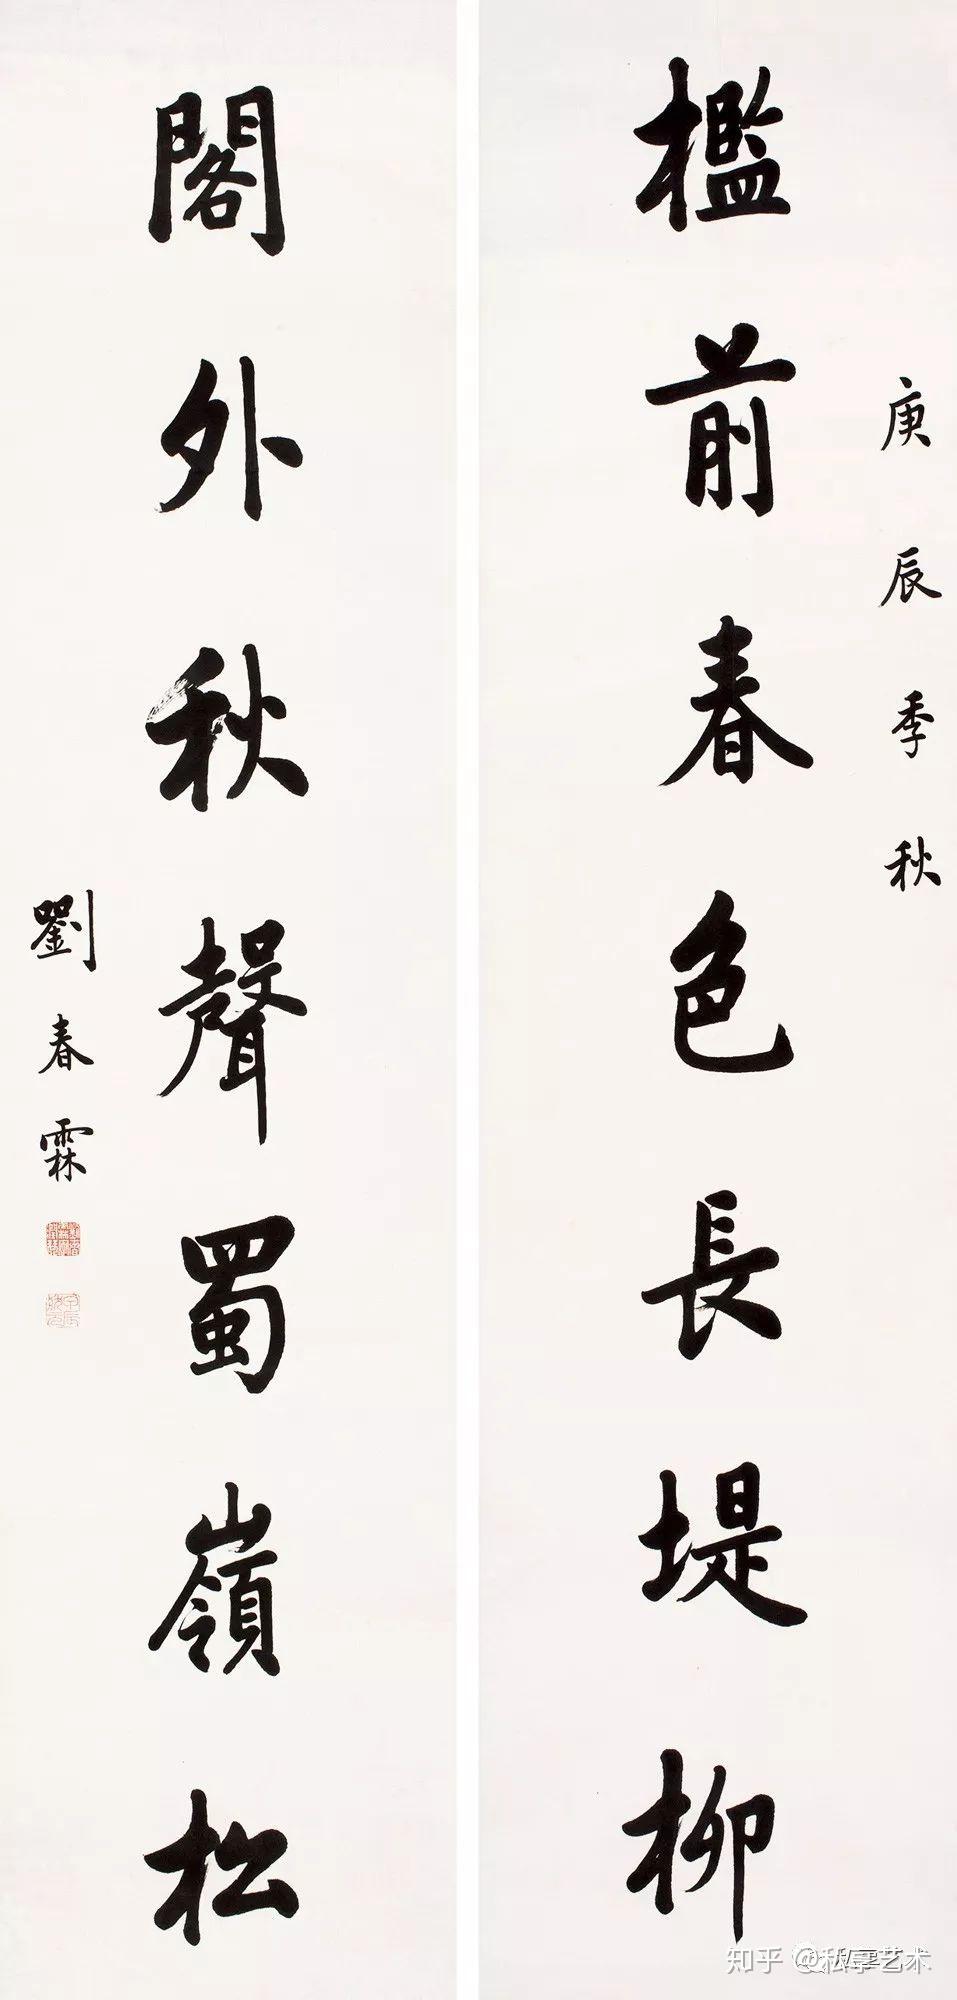 庚辰季秋
檻前春色長堤柳
閣外秋聲蜀嶺松
劉春霖
知乎 @私享艺术